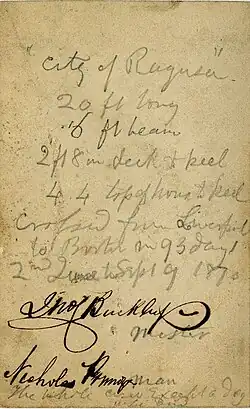 "City of Ragusa"
20 ft long
6 ft beam
2 ft 8 in deck to keel
4 4 top of house to keel
crossed from Liverpool
to Boston in 93 days
2nd June to Sept 9 1870
Jno Buckley
Master
Nicholas Primoraz
man
The whole crew except a dog